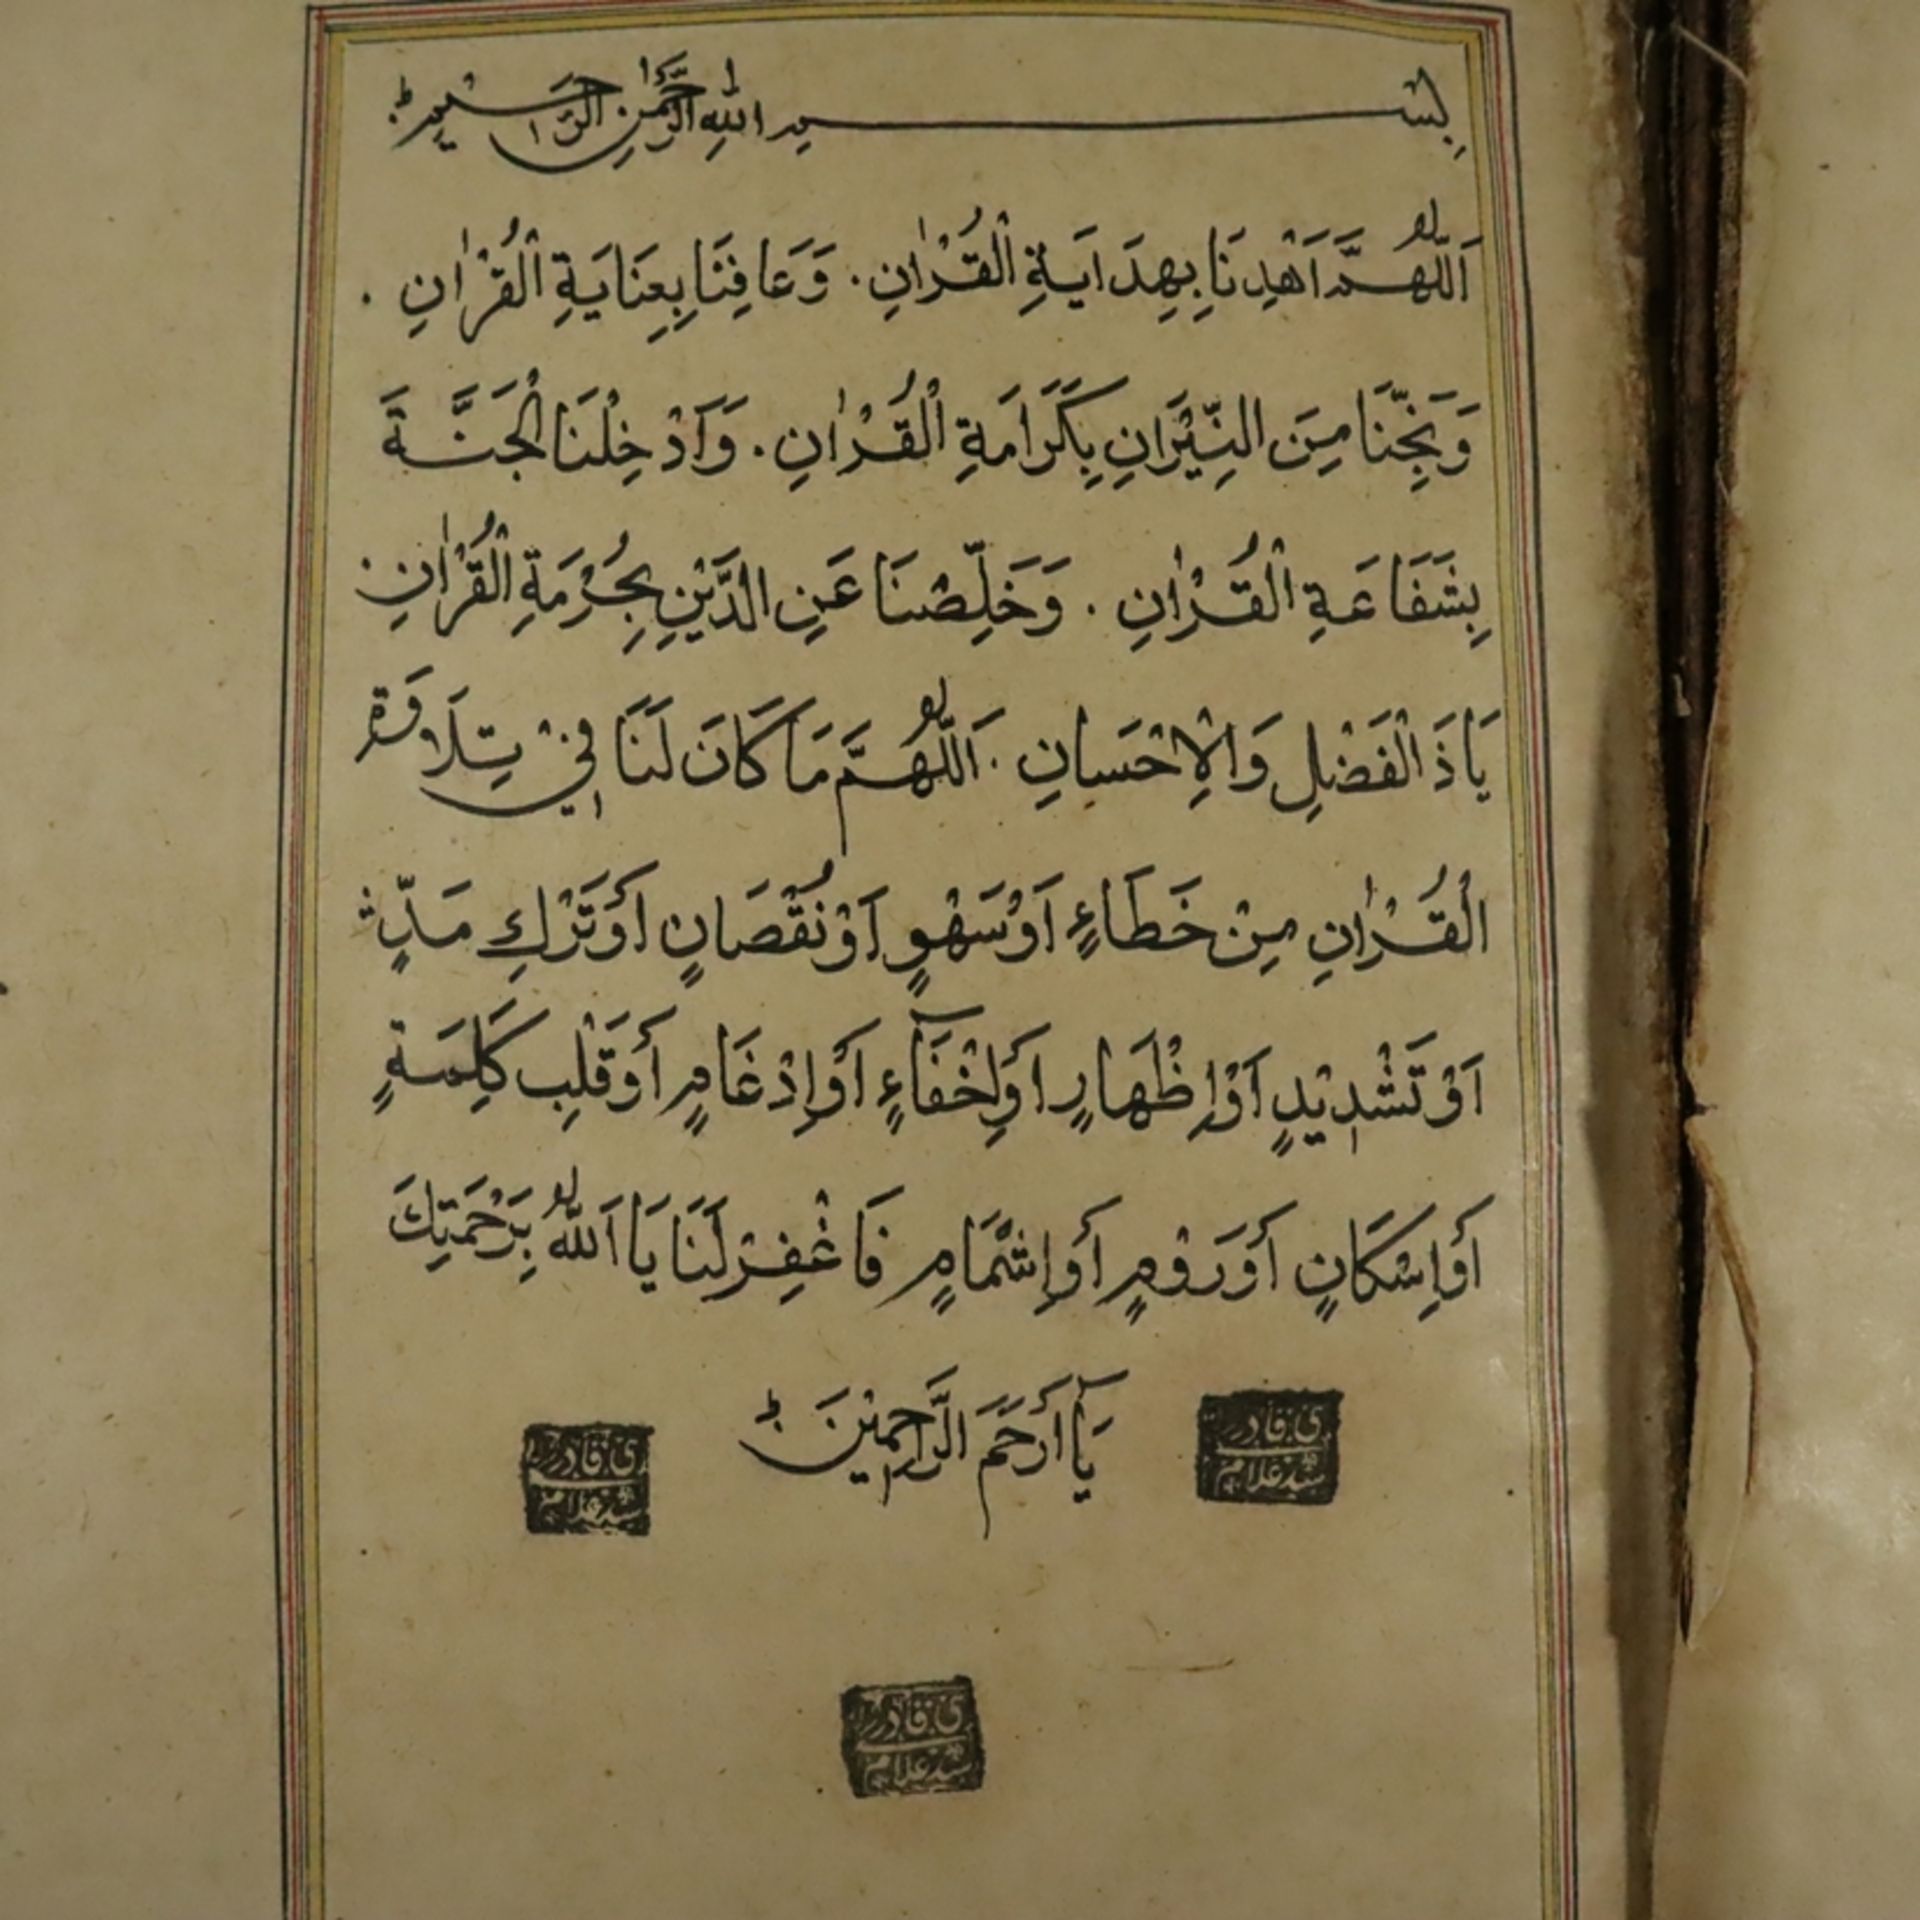 بِسْمِ اللهِ الرَّحْمٰنِ الرَّحِيْمِ
اَللّٰهُمَّ اَهْدِنَا بِهِدَايَةِ الْقُرْاٰنِ . وَعَافِنَا بِعِنَايَةِ الْقُرْاٰنِ .
وَنَجِّنَا مِنَ النِّيْرَانِ بِكَرَامَةِ الْقُرْاٰنِ . وَاَدْخِلْنَا الْجَنَّةَ
بِشَفَاعَةِ الْقُرْاٰنِ . وَخَلِّصْنَا عَنِ الدَّيْنِ بِحُرْمَةِ الْقُرْاٰنِ .
يَا ذَ الْفَضْلِ وَالْاِحْسَانِ . اَللّٰهُمَّ مَا كَانَ لَنَا فِيْ تِلَاوَةِ
الْقُرْاٰنِ مِنْ خَطَاءٍ اَوْ سَهْوٍ اَوْ نُقْصَانٍ اَوْ تَرْكِ مَدٍّ
اَوْ تَشْدِيْدٍ اَوْ اِظْهَارٍ اَوْ اِخْفَآءٍ اَوْ اِدْغَامٍ اَوْ قَلْبِ كَلِمَةٍ
اَوْ اِسْكَانٍ اَوْ رَوْمٍ اَوْ اِشْمَامٍ فَاغْفِرْ لَنَا يَا اَللّٰهُ بِرَحْمَتِكَ
يَآ اَرْحَمَ الرَّاحِمِيْنَ
ی قادر
سید غلام
ی قادر
سید غلام
ی قادر
سید غلام